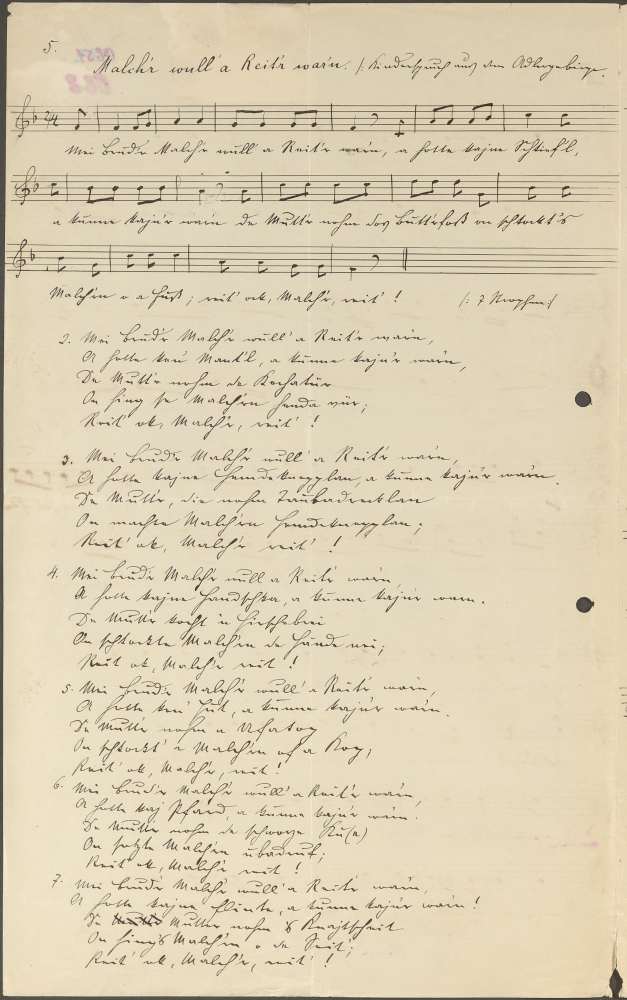 5.
Malch'r wull' a Reit'r wan'n. /: Kinderspruch aus dem Adlergebirge.
2/4
Mei Brud'r Malch'r wull' a Reit'r warn, a hotte kajne Schtief'l,
a kunne kaju'r warn de Mutt'r nohm dos Butt'rfoß on schtockt's
Malch'rn o a Fuß; reit' ok, Malch'r, reit' ! /: 7 Strophen :/
2. Mei Brud'r Malch'r wull' a Reit'r warn,
A hotte ken' Mant'l, a kunne kaju'r warn,
De Mutt'r nohm de
On hing se Malch'rn henda vür;
Reit' ok, Malch'r, reit' !
3. Mei Brud'r Malch'r wull' a Reit'r warn,
A hotte kajne Hemdeknepplan, a kunne kaju'r warn.
De Mutt'r, die nohm
On machte Malch'rn Hemdeknepplan;
Reit' ok, Malch'r reit' !
4. Mei Brud'r Malch'r wull a Reit'r warn
A hotte kajne Handschka, a kunne kaju'r warn.
De Mutt'r kocht 'n Hirschebrei
On schtockte Malch'rn de Hände nei;
Reit ok, Malch'r reit !
5. Mei Brud'r Malch'r wull' a Reit'r warn,
A hotte ken' Hut, a kunne kaju'r warn.
De Mutt'r nohm a Ufatop
On schtockt' 'n Malch'rn of a Kop;
Reit' ok, Malch'r, reit' !
6. Mei Brud'r Malch'r wull' a Reit'r warn,
A hotte kaj Pfard, a kunne kaju'r warn.
De Mutter nohm de schworze Ku(e)
On sotzte Malch'rn
Reit' ok, Malch'r reit !
7. Mei Brud'r Malch'r wull' a Reit'r warn,
A hotte kajne Flinte, a kunne kaju'r warn!
De Mutter nohm 's
On hing's Malch'rn o de Seit';
Reit' ok, Malch'r, reit' !